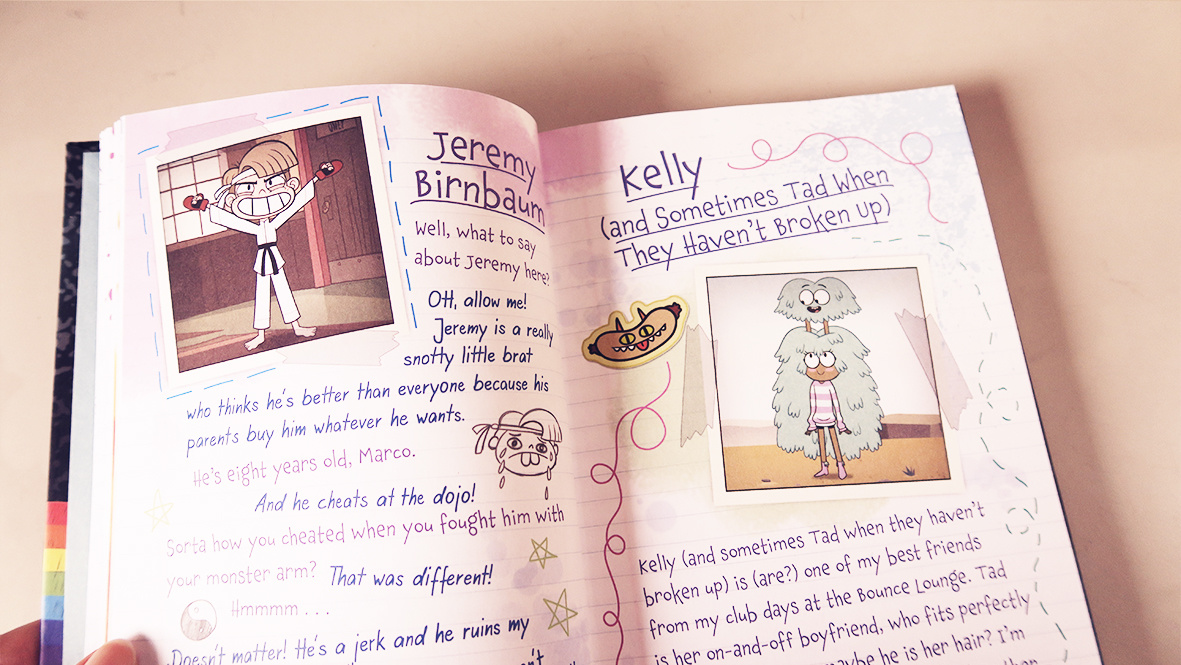 Jeremy
Birnbaum
Well, what to say
about Jeremy here?
OH, allow me!
Jeremy is a really
snotty little brat
who thinks he's better than everyone because his
parents buy him whatever he wants.
He's eight years old, Marco.
And he cheats at the dojo!
Sorta how you cheated when you fought him with
your monster arm? That was different!
Hmmmm . . .
Doesn't matter! He's a jerk and he ruins my
Kelly
(and Sometimes Tad When
They Haven't Broken Up)
Kelly (and sometimes Tad when they haven't
broken up) is (are?) one of my best friends
from my club days at the Bounce Lounge. Tad
is her on-and-off boyfriend, who fits perfectly
maybe he is her hair? I'm